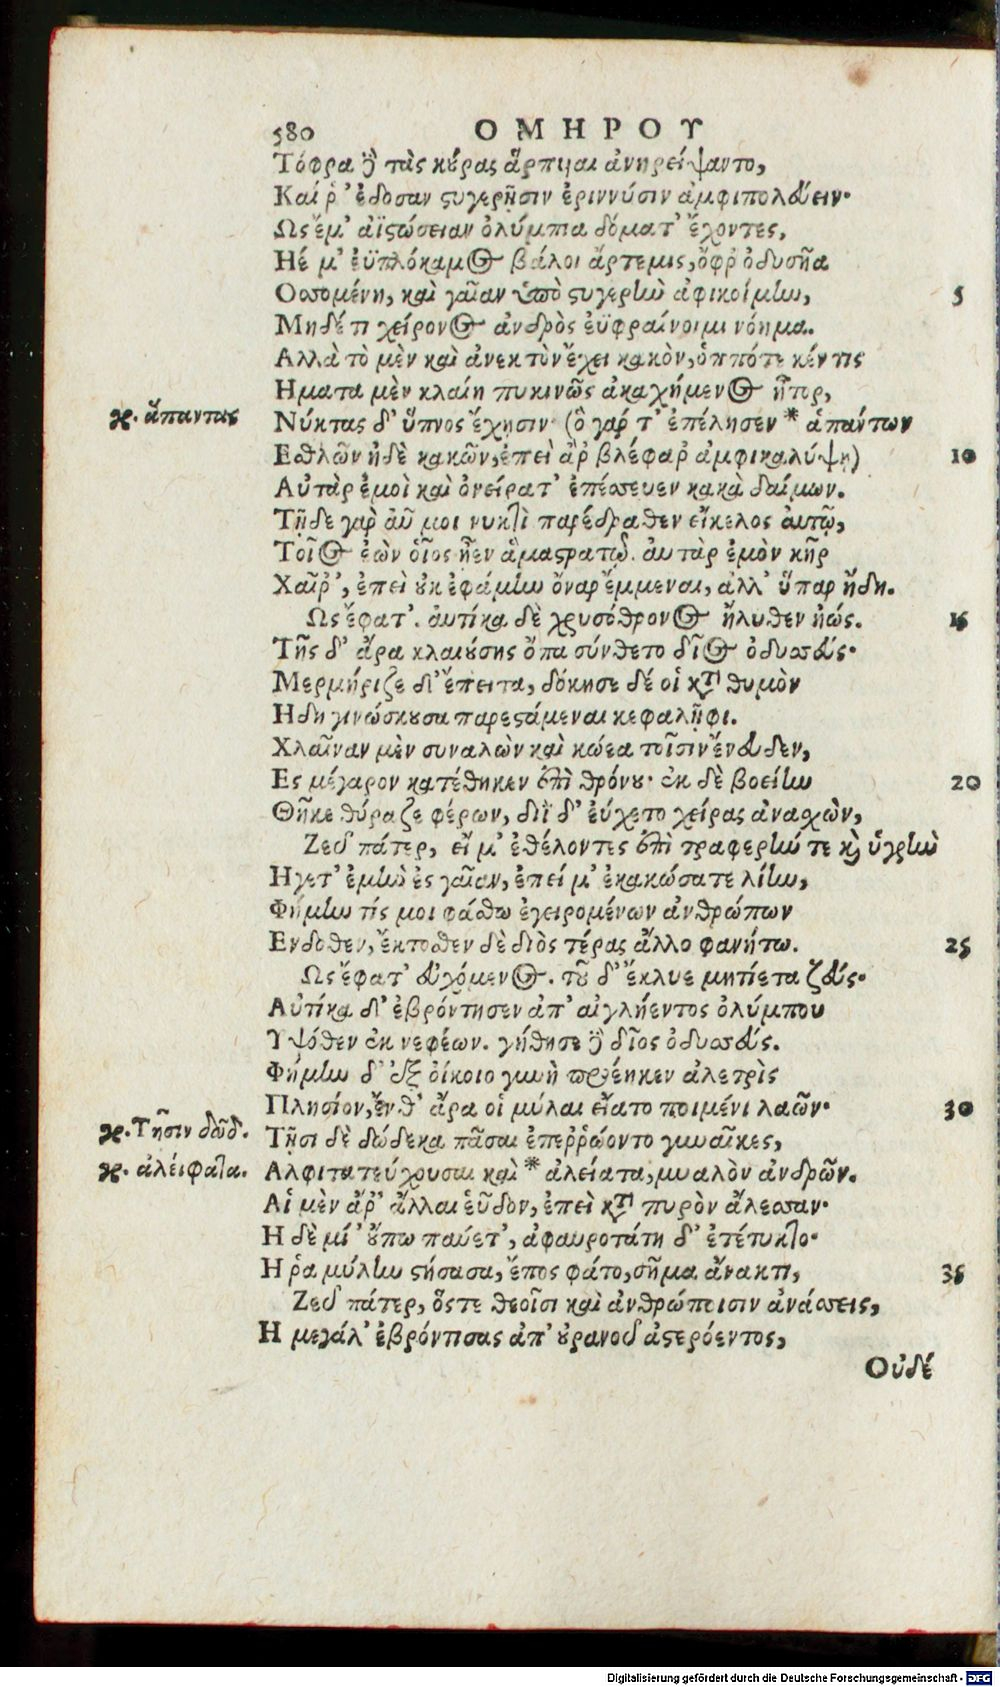 580 ΟΜΗΡΟΥ
Τόφρα δὲ τὰς κούρας ἅρπυιαι ἀνηρείψαντο,
Καί ῥ' ἔδοσαν στυγερῇσιν ἐριννύσιν ἀμφιπολεύειν·
Ως ἔμ' ἀϊστώσειαν ὀλύμπια δώματ' ἔχοντες,
Ηέ μ' ἐϋπλόκαμος βάλοι ἄρτεμις, ὄφρ' ὀδυσῆα
Οσσομένη, καὶ γαῖαν ὑπὸ στυγερὴν ἀφικοίμην, 5
Μηδέ τι χείρονος ἀνδρὸς ἐϋφραίνοιμι νόημα.
Αλλὰ τὸ μὲν καὶ ἀνεκτὸν ἔχει κακὸν, ὁππότε κέν τις
Ηματα μὲν κλαίῃ πυκινῶς ἀκαχήμενος ἦτορ,
γρ. ἅπαντας Νύκτας δ' ὕπνος ἔχησιν (ὁ γάρ τ' ἐπέλησεν * ἁπάντων
Εσθλῶν ἠδὲ κακῶν, ἐπεὶ ἂρ βλέφαρ' ἀμφικαλύψῃ) 10
Αὐτὰρ ἐμοὶ καὶ ὀνείρατ' ἐπέσσευεν κακὰ δαίμων.
Τῇδε γὰρ αὖ μοι νυκτὶ παρέδραθεν εἴκελος αὐτῷ,
Τοῖος ἐὼν οἷος ἦεν ἅμα στρατῷ. αὐτὰρ ἐμὸν κῆρ
Χαῖρ', ἐπεὶ οὐκ ἐφάμην ὄναρ ἔμμεναι, ἀλλ' ὕπαρ ἤδη.
Ως ἔφατ'. αὐτίκα δὲ χρυσόθρονος ἤλυθεν ἠώς. 15
Τῆς δ' ἄρα κλαιούσης ὄπα σύνθετο δῖος ὀδυσσεύς·
Μερμήριζε δ' ἔπειτα, δόκησε δέ οἱ κατὰ θυμὸν
Ηδη γινώσκουσα παρεστάμεναι κεφαλῇφι.
Χλαῖναν μὲν συνελὼν καὶ κώεα τοῖσιν ἔνευδεν,
Ες μέγαρον κατέθηκεν ἐπὶ θρόνου· ἐκ δὲ βοείην 20
Θῆκε θύραζε φέρων, διῒ δ' εὔχετο χεῖρας ἀνασχὼν,
Ζεῦ πάτερ, εἴ μ' ἐθέλοντες ἐπὶ τραφερήν τε καὶ ὑγρὴν
Ηγετ' ἐμὴν ἐς γαῖαν, ἐπεί μ' ἐκακώσατε λίην,
Φήμην τίς μοι φάσθω ἐγειρομένων ἀνθρώπων
Ενδοθεν, ἔκτοσθεν δὲ διὸς τέρας ἄλλο φανήτω. 25
Ως ἔφατ' εὐχόμενος. τοῦ δ' ἔκλυε μητίετα ζεύς·
Αὐτίκα δ' ἐβρόντησεν ἀπ' αἰγλήεντος ὀλύμπου
Υψόθεν ἐκ νεφέων. γήθησε δὲ δῖος ὀδυσσεύς.
Φήμην δ' ἐξ οἴκοιο γυνὴ προέηκεν ἀλετρὶς
Πλησίον, ἔνθ' ἄρα οἱ μύλαι εἵατο ποιμένι λαῶν· 30
γρ. Τῇσιν δώδ. Τῇσι δὲ δώδεκα πᾶσαι ἐπεῤῥώοντο γυναῖκες,
γρ. ἀλείφατα. Αλφιτα τεύχουσαι καὶ * ἀλείατα, μυαλὸν ἀνδρῶν.
Αἱ μὲν ἄρ' ἄλλαι εὗδον, ἐπεὶ κατὰ πυρὸν ἄλεσσαν·
Η δὲ μί' οὔπω παύετ', ἀφαυροτάτη δ' ἐτέτυκτο·
Η ῥα μύλην στήσασα, ἔπος φάτο, σῆμα ἄνακτι, 35
Ζεῦ πάτερ, ὅστε θεοῖσι καὶ ἀνθρώποισιν ἀνάσσεις,
Η μεγάλ' ἐβρόντησας ἀπ' οὐρανοῦ ἀστερόεντος,
Οὐδέ
Digitalisierung gefördert durch die Deutsche Forschungsgemeinschaft - DFG